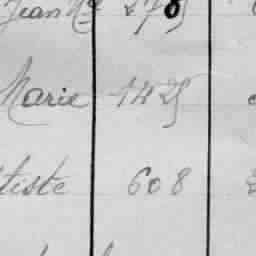 Jean 278
Marie 1425
tiste 608